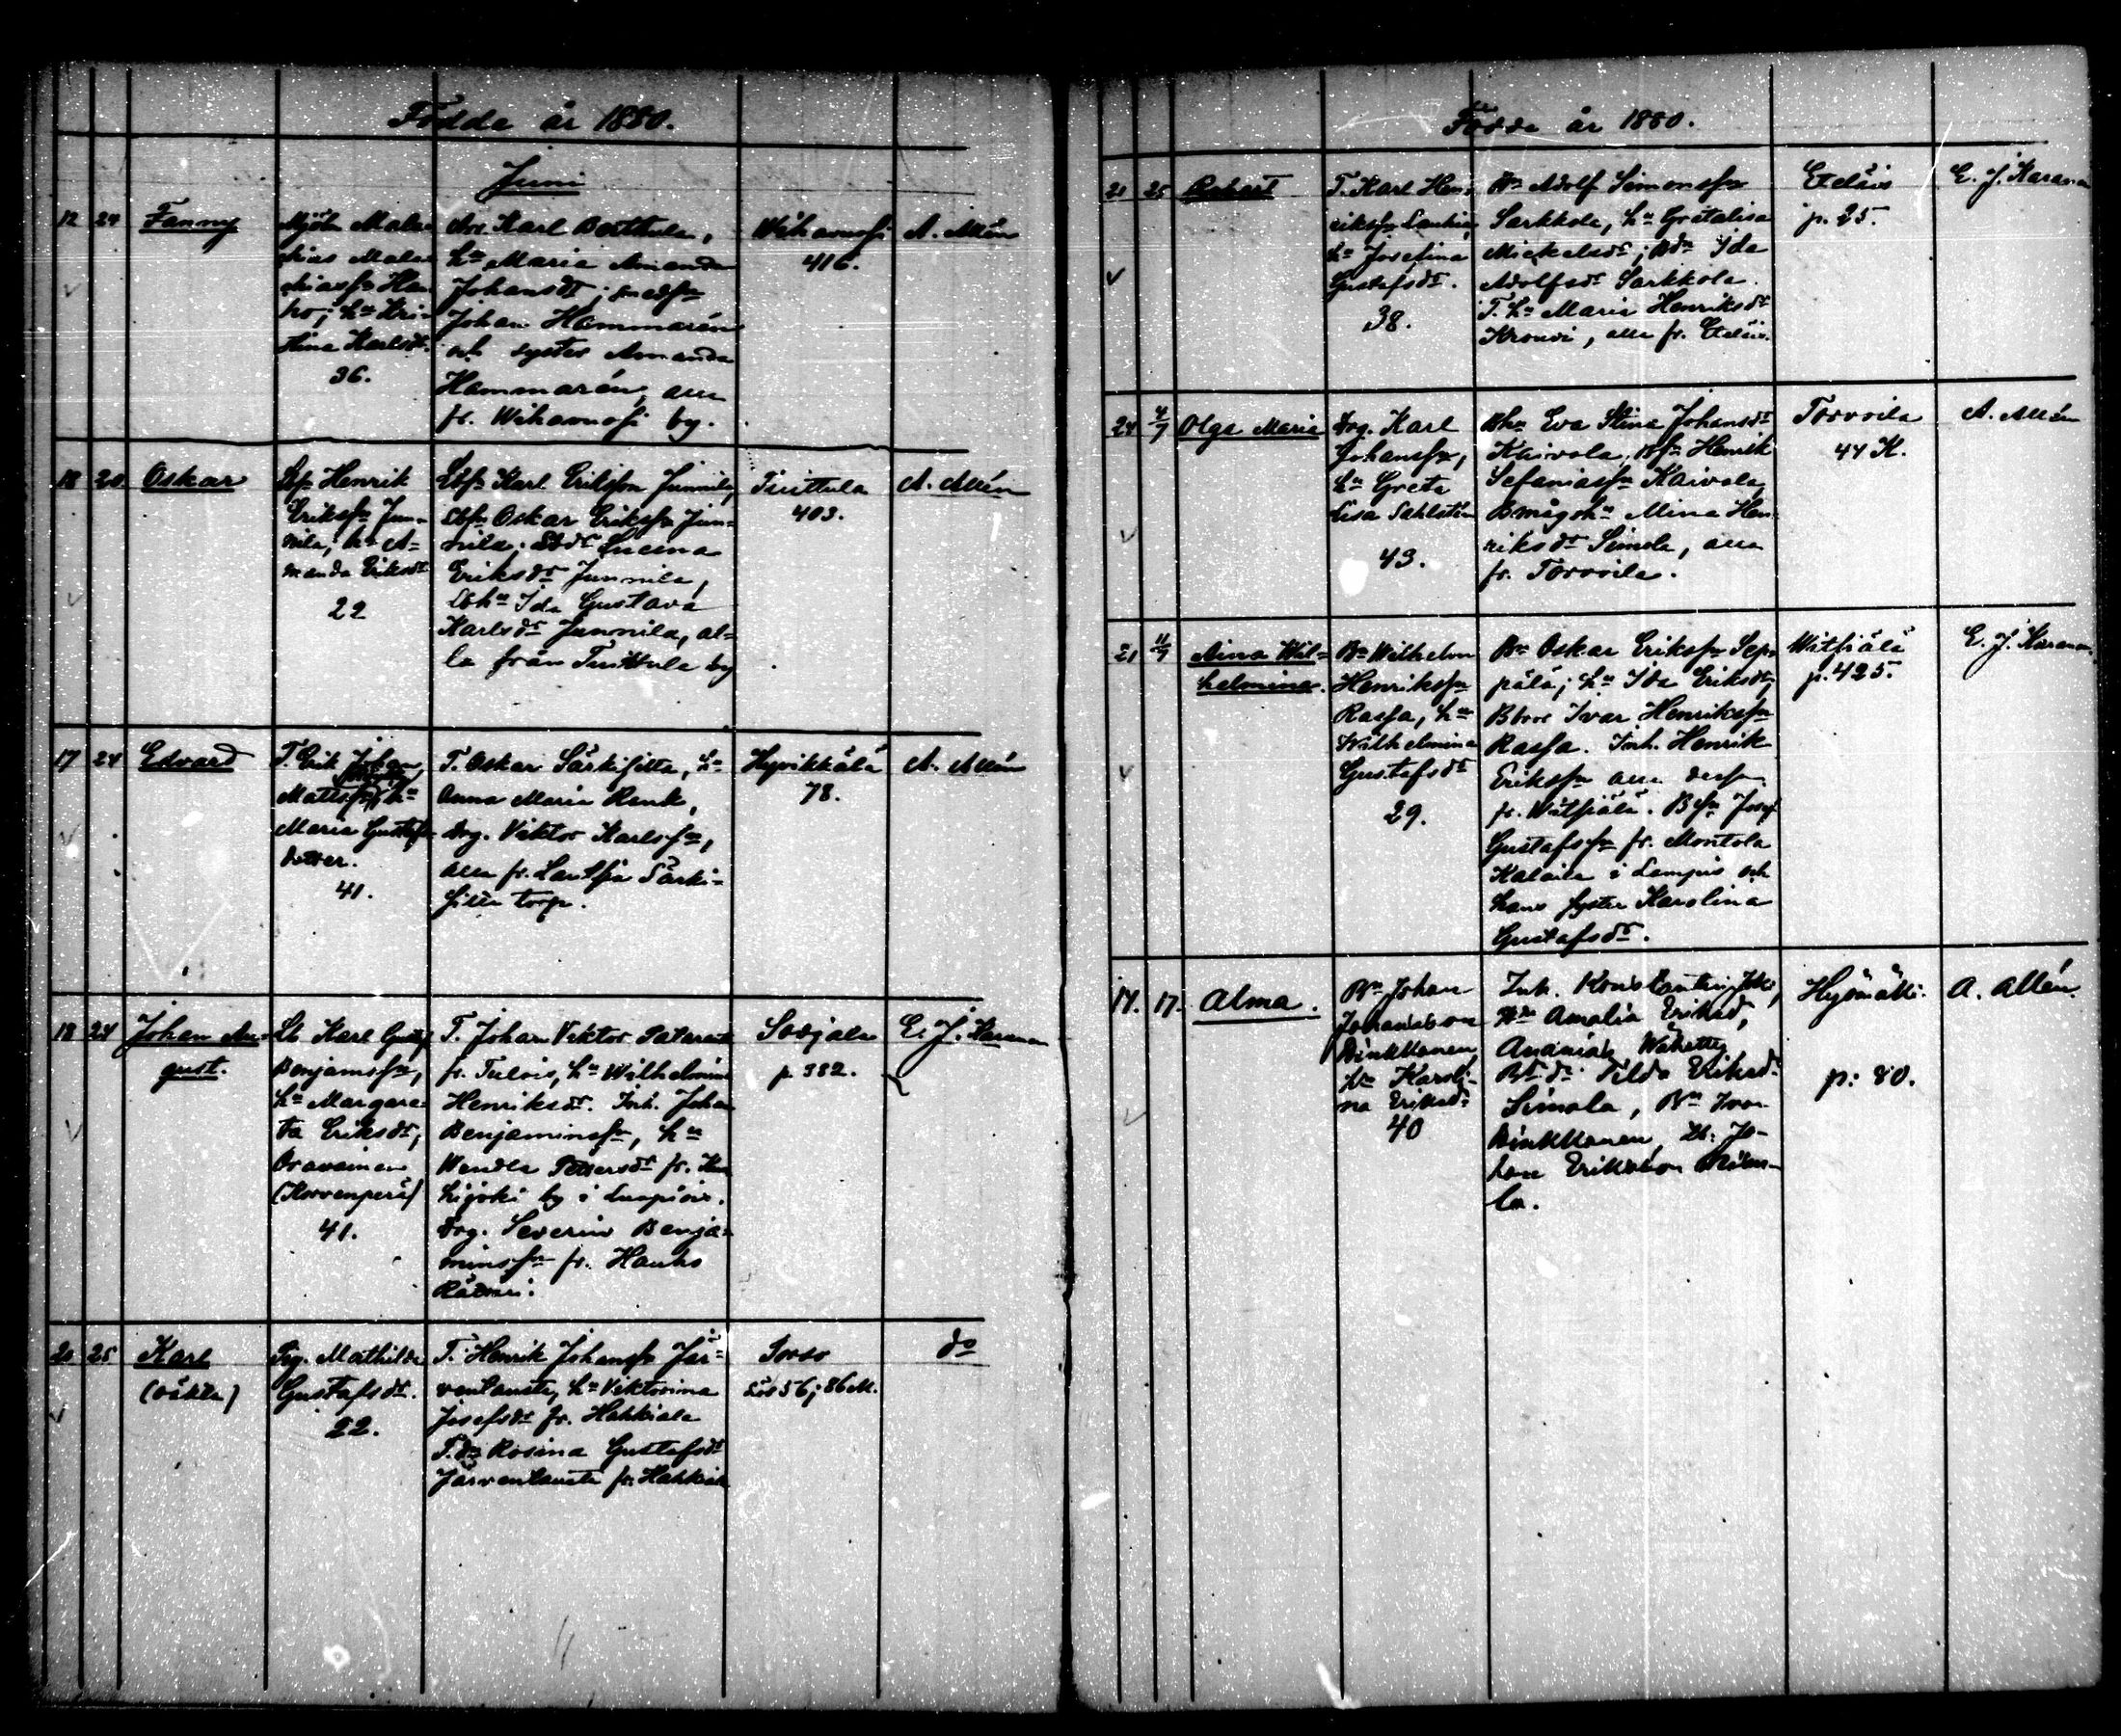 Födde år 1880.
Juni
12 24 Fanny
Mjöln. Mala-
kias Mala-
kiasfn Han-
ho; hu Kri-
stina Karlsdr.
36.
Arr. Karl Perttula,
hu Maria Amanda
Johansdr; smedfn
Johan Hammarén
och syster Amanda
Hammarén, alla
fr. Wihavuosi by.
Wihavuosi
416.
A. Allén
18 20 Oskar
Lbfn Henrik
Eriksfn Jun-
nila; hu A-
manda Eriksdr
22
Lbfn Karl Eriksson Junnila,
Lbfn Oskar Eriksfn Jun-
nila; Lbdr Lucina
Eriksdr Junnila,
Lbhu Ida Gustava
Karlsdr Junnila, al-
la från Turittula by
Turittula
403.
A. Allén
17 24 Edvard
T. Erik Johan
Mattsfn, hu
Maria Gustafs-
dotter.
41.
T. Oskar Särkifilta, hu
Anna Maria Renk,
Drg. Viktor Karlsfn,
alla fr. Särki-
filta torp.
Hyvikkälä
78.
A. Allén
18 24 Johan Au-
gust.
Lb Karl Gustaf
Benjamsfn,
hu Margare-
ta Eriksdr,
Oravainen
(Korvenperä)
41.
T. Johan Viktor
fr. Tulois, hu Wilhelmina
Henriksdr. Inh. Johan
Benjaminsfn, hu
Wendla Pettersdr fr.
by i Lampis.
Drg. Severin Benja-
minsfn fr. Hauho
Sorjala
p. 382.
E. J. Karanen
20 25 Karl
(oäkta)
Pig. Mathilda
Gustafsdr.
22.
T. Henrik Johansfn Jär-
ventausta, hu Viktorina
Josefsdr fr. Hahkiala
T. dr Rosina Gustafsdr
Järventausta fr. Hahkiala
Torso
Lös 56; 86 M.
do
Födde år 1880.
21 25 Robert
T. Karl Hen-
riksfn
hu Josefina
Gustafsdr.
38.
Bn Adolf Simonsfn
Sarkkola, hu Gretalisa
Mickelsdr; Bdr Ida
Adolfsdr Sarkkola.
T. hu Maria Henriksdr
Kronvi, alla fr. Eteläis.
Eteläis
p. 25.
E. J. Karanen
24 4/7 Olga Maria
Drg. Karl
Johansfn,
hu Greta
Lisa Sahlstén
43.
Bhu Eva Stina Johansdr
Kaivola, Bfn Henrik
Sefaniasfn Kaivola,
Bmågshu Mina Hen-
riksdr Simola, alla
fr. Torvoila.
Torvoila
44 K.
A. Allén
21 4/7 Aina Wil-
helmina.
Bn Wilhelm
Henriksfn
Rassa, hu
Wilhelmina
Gustafsdr
29.
Bn Oskar Eriksfn Sep-
pälä; hu Ida Eriksdr,
Bbror Ivar Henriksfn
Rassa. Inh. Henrik
Eriksfn alla dessa
fr. Witsiälä. Bfn Josef
Gustafsfn fr. Montola
Kataila i Lampis och
hans syster Karolina
Gustafsdr.
Witsiälä
p. 425.
E. J. Karanen
14. 17. Alma.
Bn Johan
Johansson
hu Karoli-
na Eriksdr
40
Inh. Konstantin
hu Amalia Eriksd,
Ananias
Bdr Tilda Eriksdr
Simola, Bn Ivar
Lb. Jo-
han Eriksson
la.
p: 80.
A. Allén.